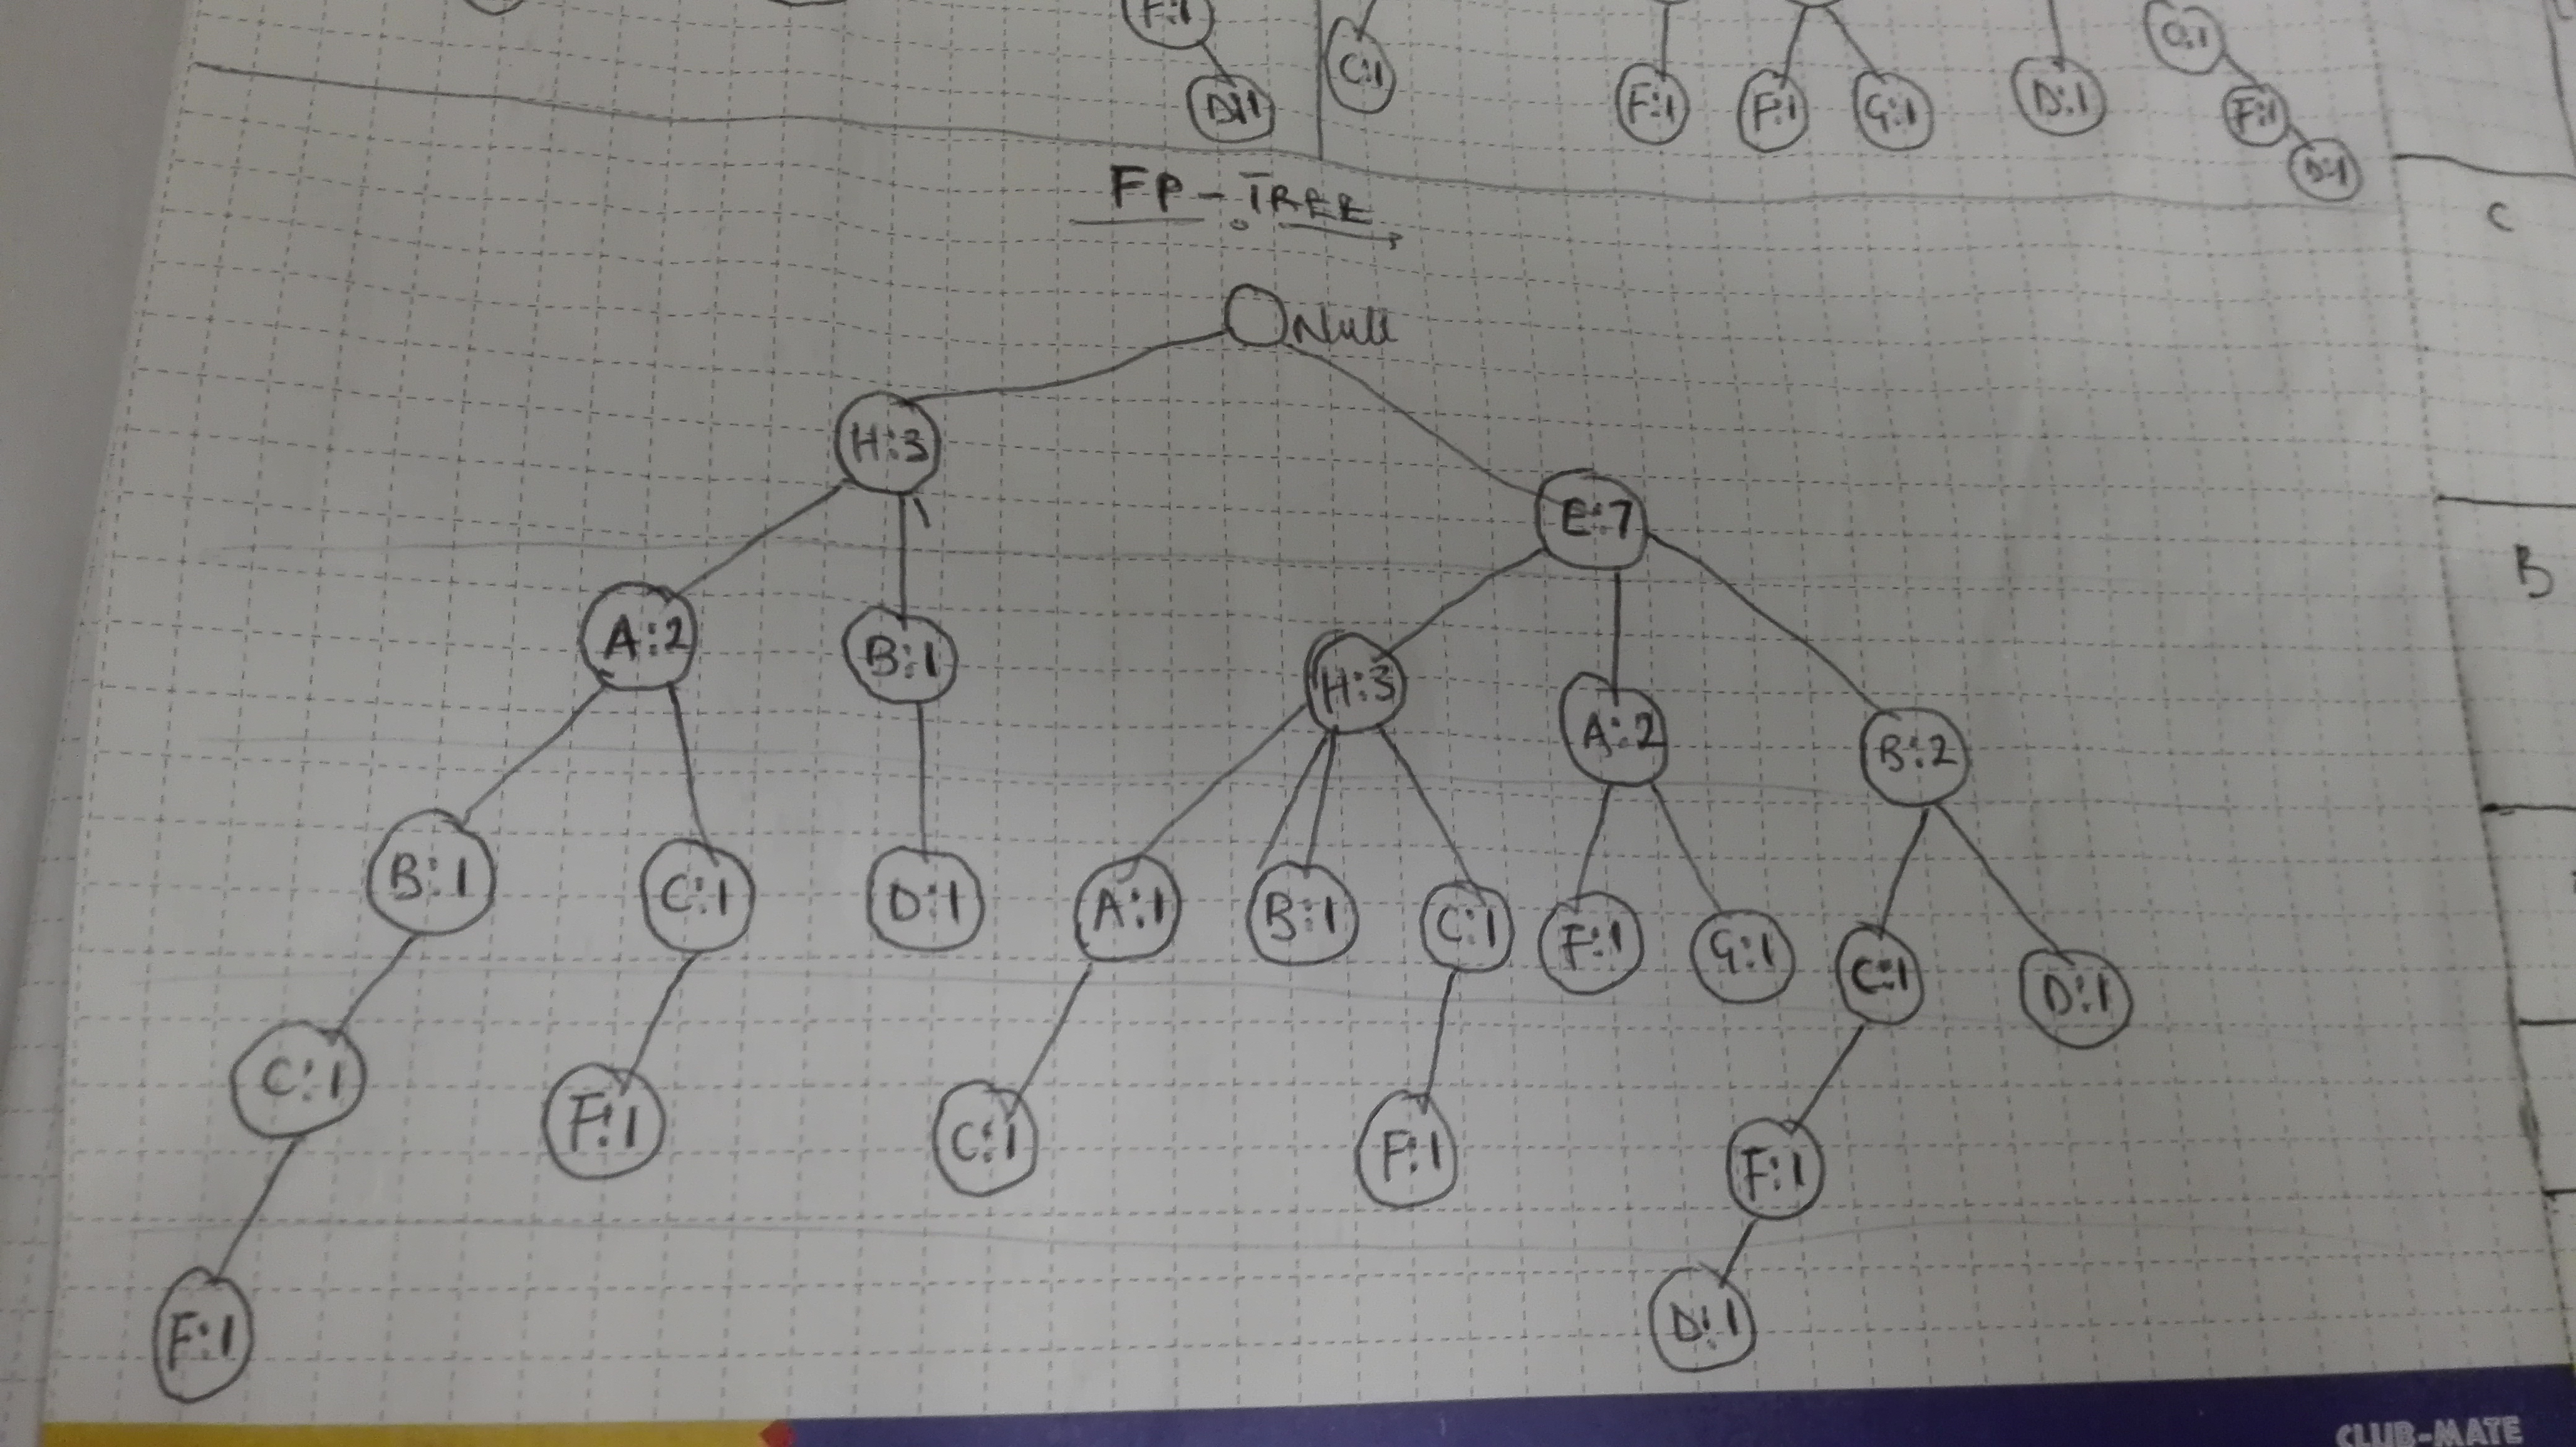 F:1
C:1
O:1
D:1
F:1
F:1
G:1
D:1
F:1
D:1
FP-TREE
C
Null
H:3
E:7
B
A:2
B:1
H:3
A:2
B:2
B:1
C:1
D:1
A:1
B:1
C:1
F:1
G:1
C:1
D:1
C:1
F:1
C:1
F:1
F:1
F:1
D:1
CLUB-MATE